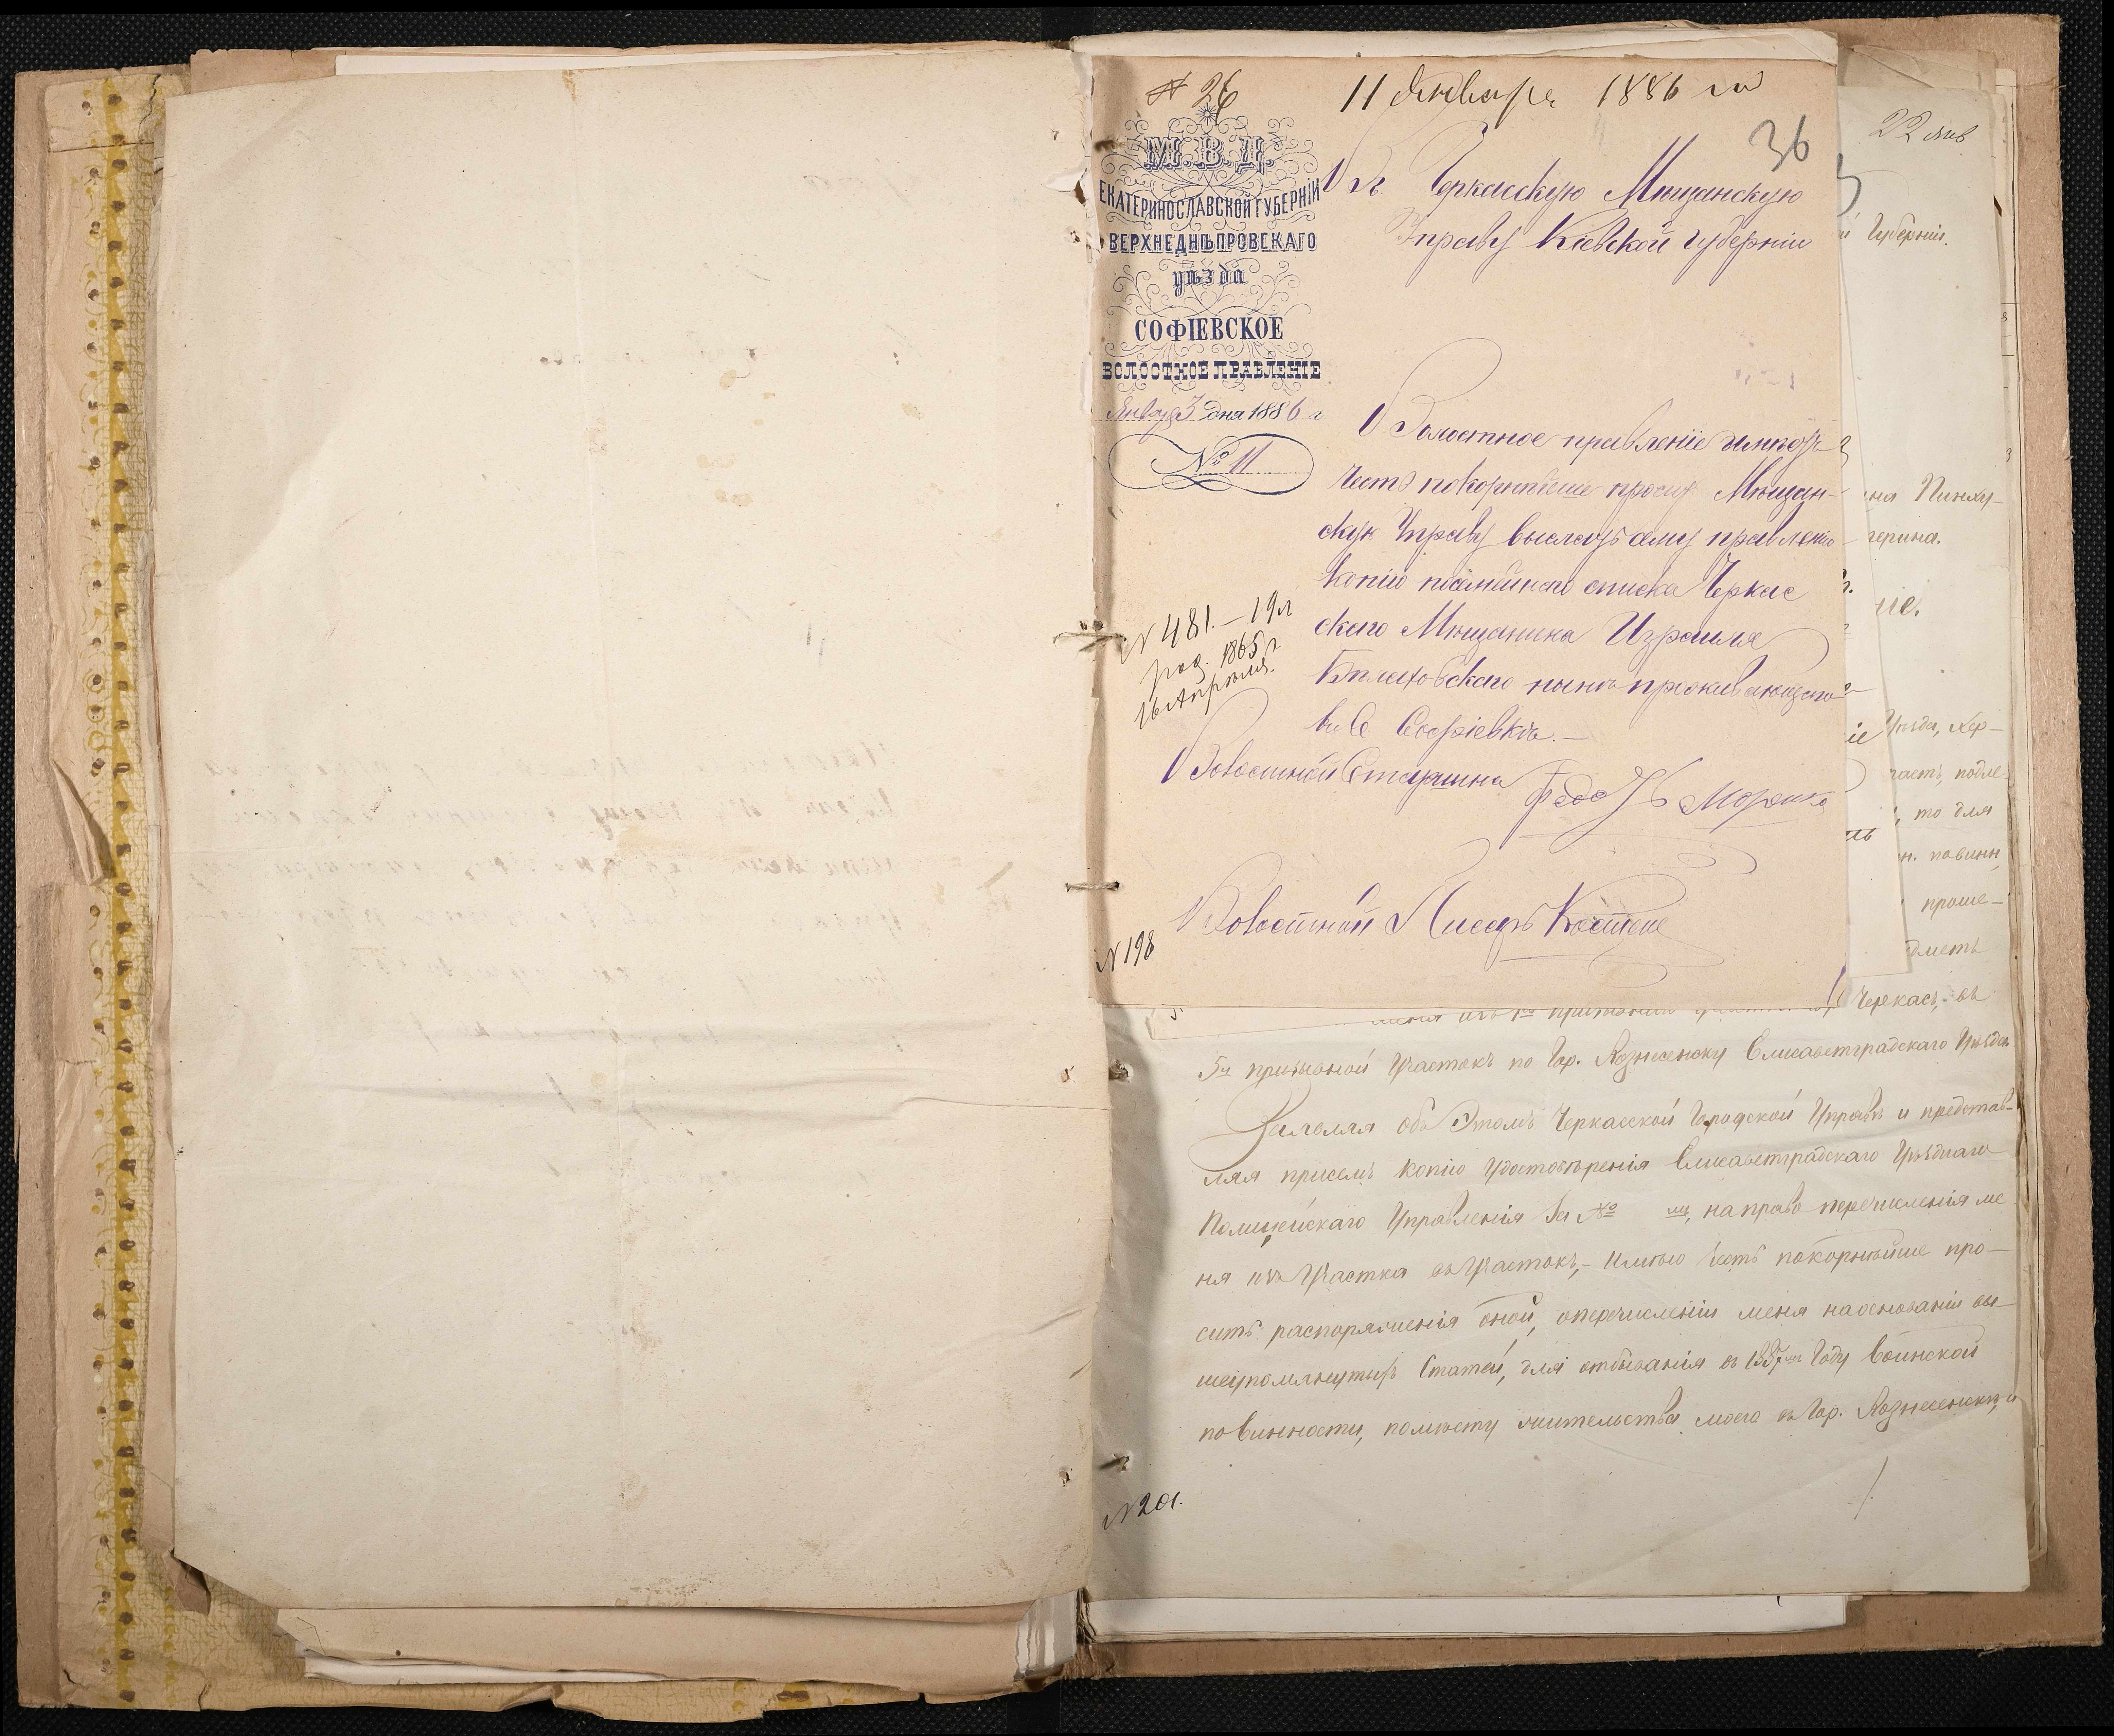 № 26
11 Января 1886 го
36
М.В.Д.
ЕКАТЕРИНОСЛАВСКОЙ ГУБЕРНІИ
ВЕРХНЕДНѢПРОВСКАГО
уѣзда
СОФІЕВСКОЕ
ВОЛОСТНОЕ ПРАВЛЕНІЕ
Января 3 дня 1886 г
№ 11
Въ Черкасскую Мѣщанскую
Управу Кіевской губерніи
Волостное правленіе имѣетъ
честь покорнѣйше проситъ Мѣщан-
скую Управу выслать ему правленію
копію посѣмейнаго списка Черкас
скаго Мѣщанина Израиля
Бѣлаховскаго нынѣ проживающаго
въ С Софіевкѣ.—
№ 481.—19 л
род. 1865 г
16 Апрѣля.
Волостной Старшина
Волостной Писарь
№ 198
22 Янв
Губерніи.
герина.
ніе.
Уѣзда, Хер-
часть, подле-
, то для
н. повинн
проше-
Черкасъ, въ
5й призывной Участокъ по Гор. Вознесенску Елисаветградскаго Уѣзда
Заявляя объ Этомъ Черкасской Городской Управѣ и представ-
ляя присемъ копію удостовѣренія Елисаветградскаго Уѣзднаго
Полицейскаго Управленія за №, на право перечисленія ме
ня изъ Участка въ Участокъ,- имѣю честь покорнѣйше про-
сить распоряженія оной, оперечисленіи меня наоснованіи вы-
шеупомянутыхъ Статей, для отбыванія въ 1887мъ Году Воинской
повинности, помѣсту жительства моего въ Гор. Вознесенскѣ, и
№ 201.